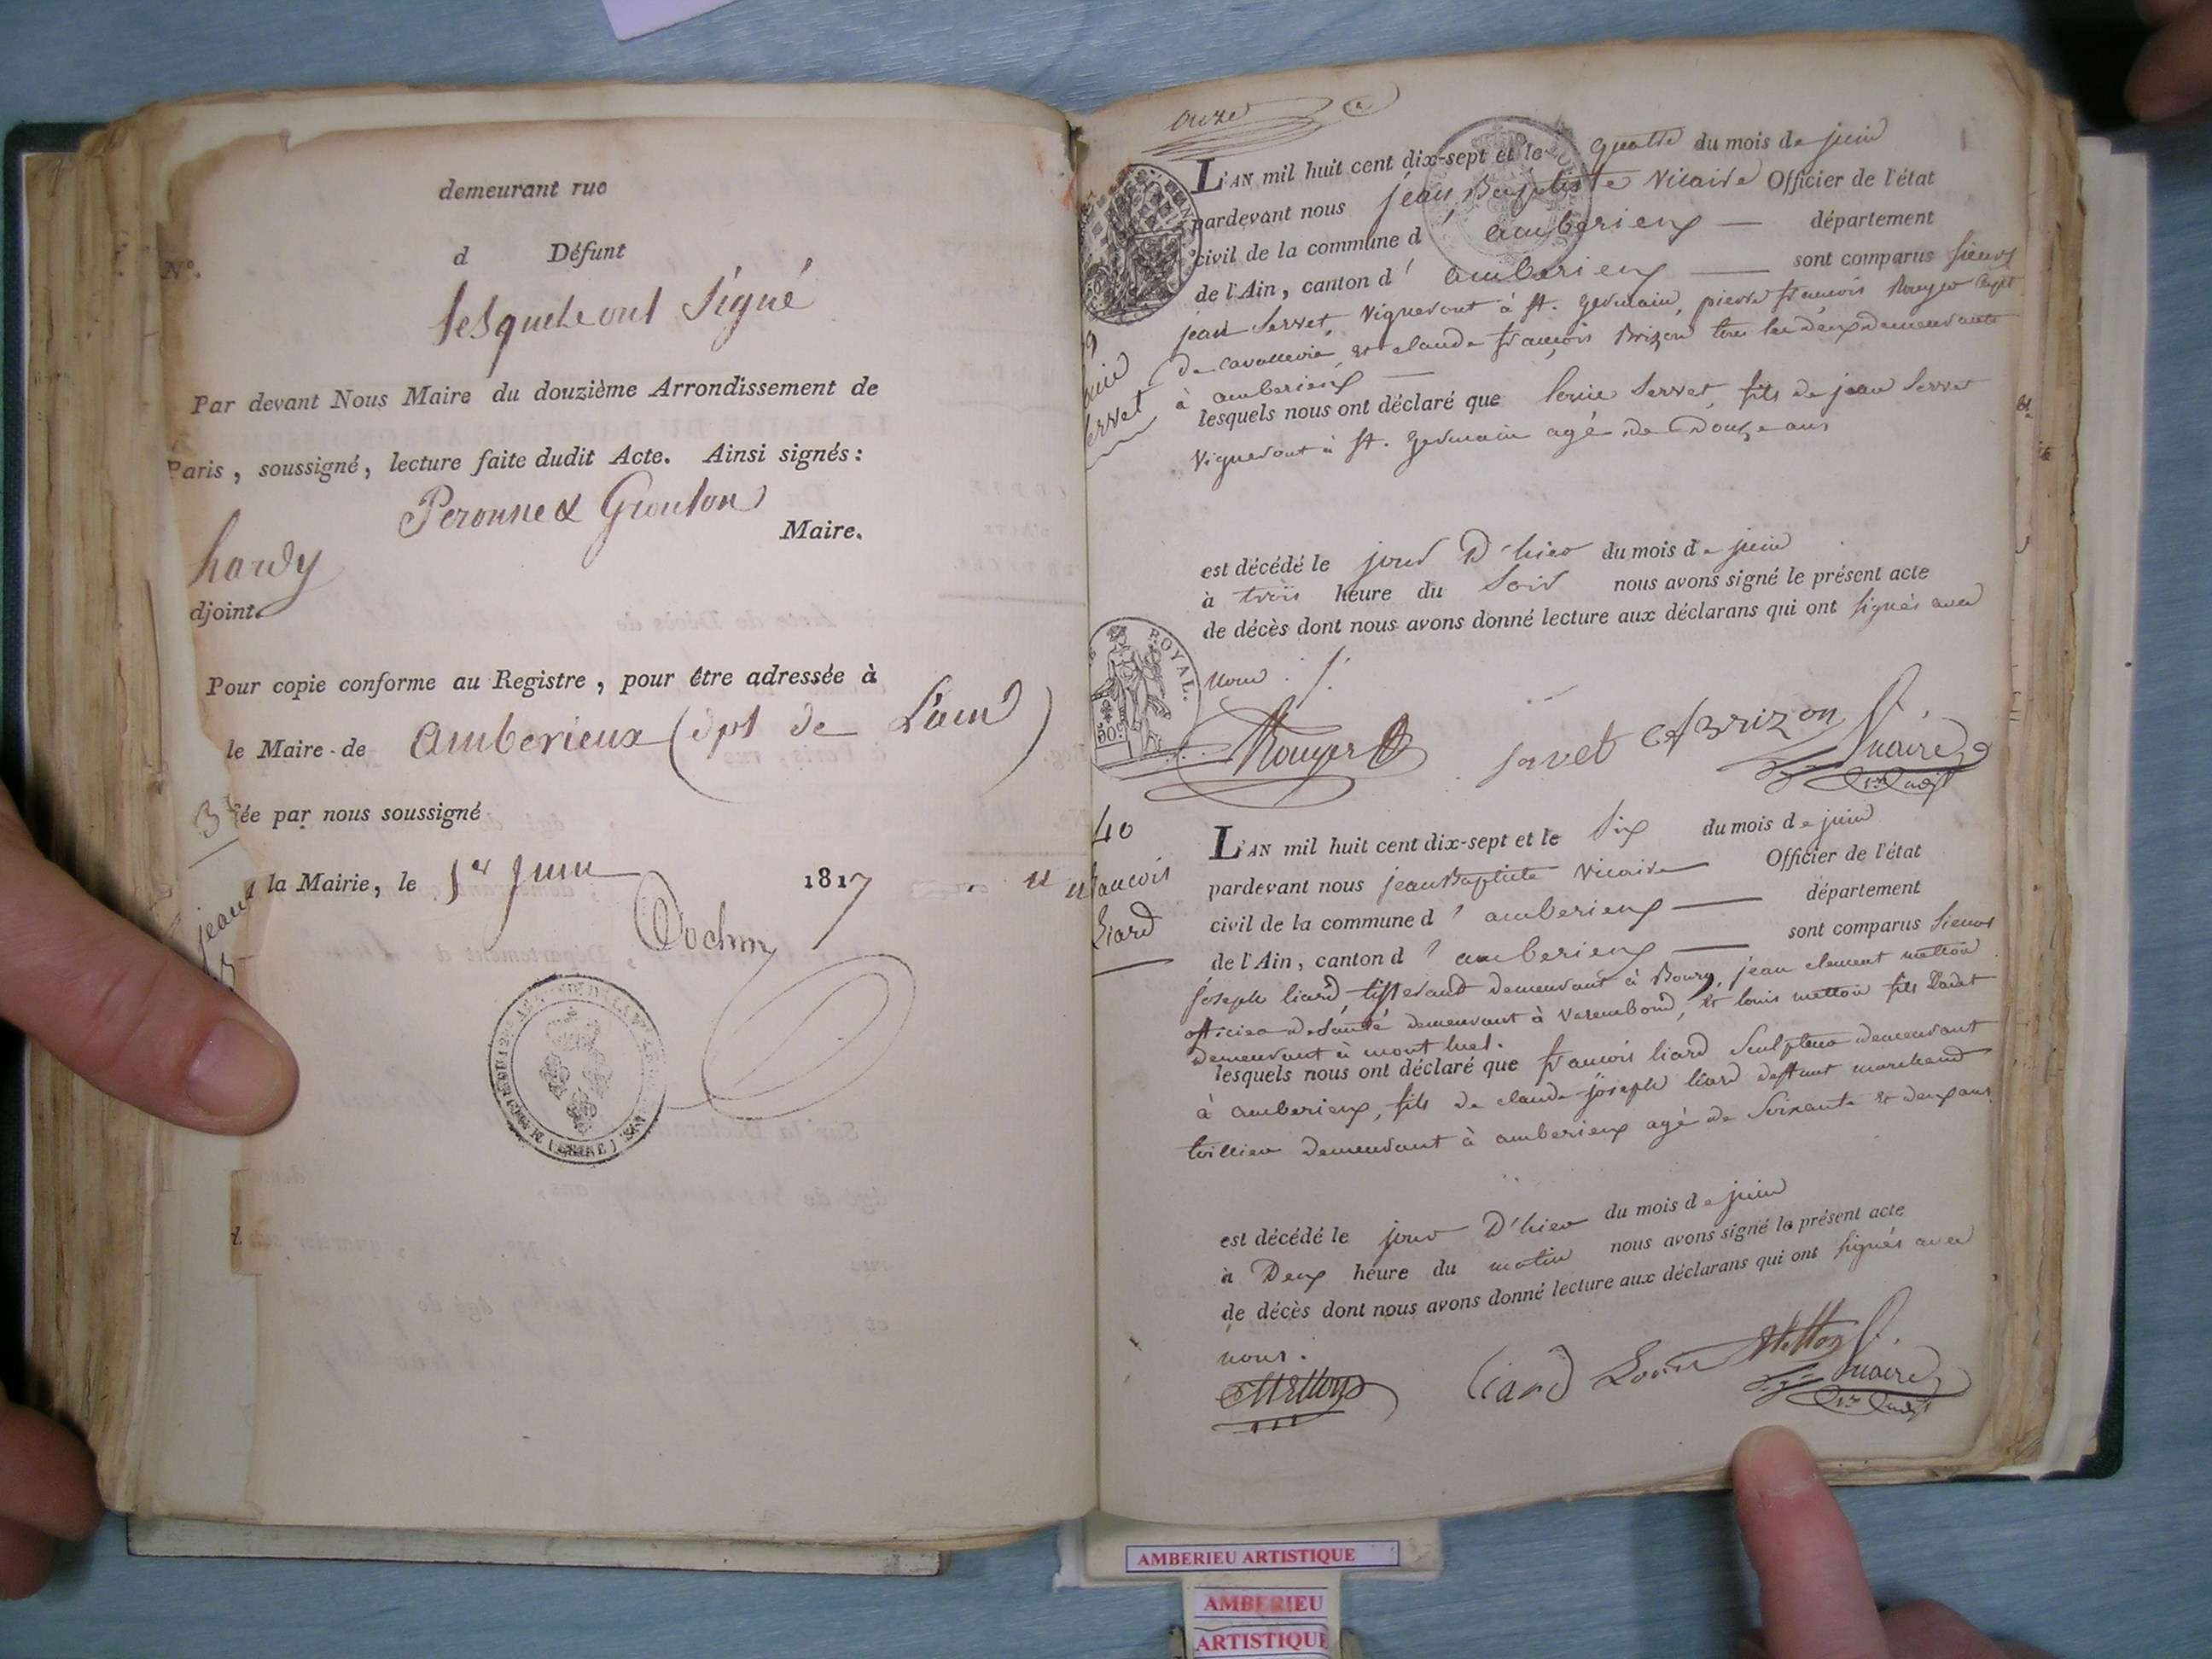 demeurant rue
N°.
d Défunt
lesquels ont Signé
Par devant Nous Maire du douzième Arrondissement de
Paris, soussigné, lecture faite dudit Acte. Ainsi signés:
Peronne &
Maire.
hardy
djoint.
Pour copie conforme au Registre, pour être adressée à
le Maire de amberieux (dpt de L'ain)
ée par nous soussigné
la Mairie, le 1er Juin 1817
jean
onze
L'AN mil huit cent dix-sept et le quatre du mois de juin
pardevant nous jean Baptiste Vicaire Officier de l'état
civil de la commune d' amberieux — département
de l'Ain, canton d' amberieux — sont comparus sieurs
jean Servet, Vigneront à St. Germain, pierre françois Rouyer
de Cavallerie, et claude françois Brizon tous les deux demeurants
à amberieux —
lesquels nous ont déclaré que Louis Servet, fils de jean Servet
Vigneront à St. Germain agé de Douze ans
est décédé le jour D'hier du mois de juin
à trois heure du Soir nous avons signé le présent acte
de décès dont nous avons donné lecture aux déclarans qui ont signés avec
nous
ROYAL.
Rouyer Servet Cf Brizon Vicaire
40
françois
Liard
L'AN mil huit cent dix-sept et le Six du mois de juin
pardevant nous jean Baptiste Vicaire — Officier de l'état
civil de la commune d' amberieux — département
de l'Ain, canton d' amberieux — sont comparus sieurs
joseph liard, tisserand demeurant à Bourg, jean clement metton
officier de Santé demeurant à Varembond, et louis metton fils Cadet
demeurant à mont luel.
lesquels nous ont déclaré que françois liard Sculpteur demeurant
à amberieux, fils de claude joseph liard deffunt marchand
demeurant à amberieux agé de Soixante et deux ans
est décédé le jour D'hier du mois de juin
à Deux heure du matin nous avons signé le présent acte
de décès dont nous avons donné lecture aux déclarans qui ont signés avec
nous.
Metton Liard Louis Metton Vicaire
AMBERIEU ARTISTIQUE
AMBERIEU
ARTISTIQUE